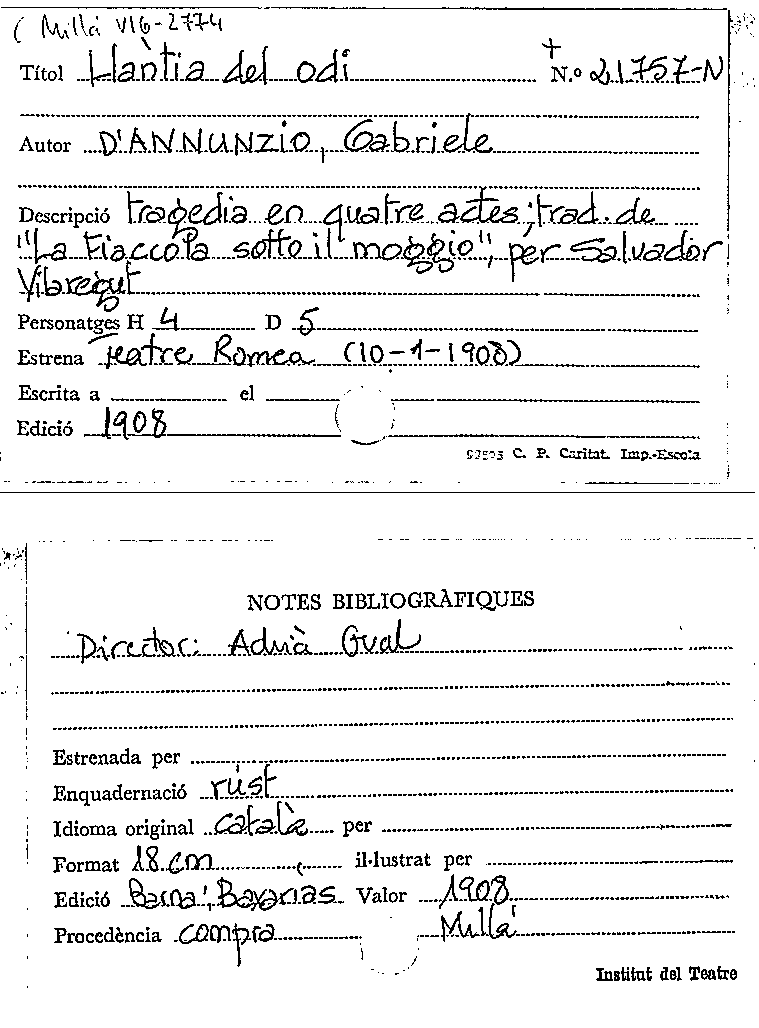 ( Millà VIG-2774
Títol Llàntia del odi N.º 21757-N
+
Autor D'ANNUNZIO, Gabriele
Descripció tragedia en quatre actes; trad. de
"La Fiaccola sotto il moggio", per Salvador
Vilaregut
Personatges H 4 D 5
Estrena Teatre Romea (10-1-1908)
Escrita a el
Edició 1908
C. P. Caritat. Imp.-Escola
NOTES BIBLIOGRÀFIQUES
Director: Adrià Gual
Estrenada per
Enquadernació rúst
Idioma original català per
Format 18 cm il·lustrat per
Edició Barna, Bayarias Valor 1908
Procedència compra Millà
Institut del Teatre